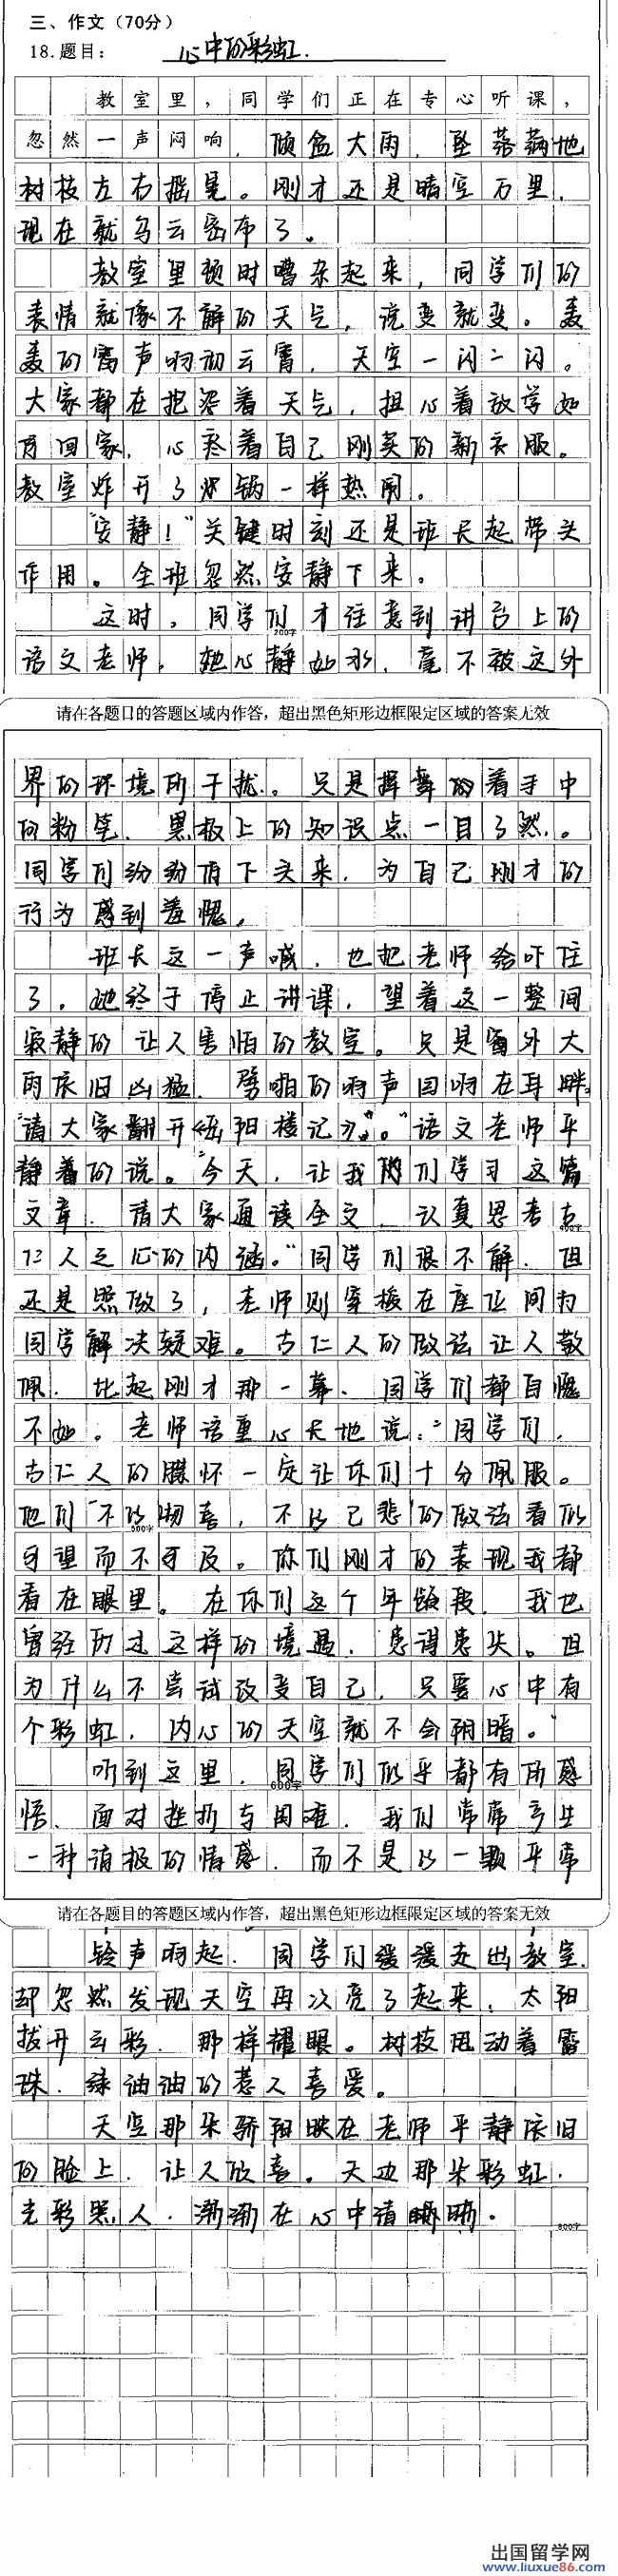 三、作文（70分）
18.题目： 心中的彩虹.
教室里，同学们正在专心听课，
忽然一声闷响，倾盆大雨，坠落满地
树枝左右摇晃。刚才还是晴空万里，
现在就乌云密布了。
教室里顿时嘈杂起来，同学们的
表情就像不解的天气，说变就变。轰
轰的雷声响彻云霄，天空一闪一闪。
大家都在抱怨着天气，担心着放学如
何回家，心疼着自己刚买的新衣服。
教室炸开了火锅一样热闹。
“安静！”关键时刻还是班长起带头
作用。全班忽然安静下来。
这时，同学们才注意到讲台上的
200字
语文老师，她心静如水，毫不被这外
请在各题目的答题区域内作答，超出黑色矩形边框限定区域的答案无效
界的环境所干扰。只是挥舞的着手中
的粉笔，黑板上的知识点一目了然。
同学们纷纷低下头来，为自己刚才的
行为感到羞愧，
班长这一声喊，也把老师给吓住
了，她终于停止讲课，望着这一整间
寂静的让人害怕的教室。只是窗外大
雨依旧凶猛，劈啪的响声回响在耳畔。
“请大家翻开《岳阳楼记》。”语文老师平
静着的说。“今天，让我们学习这篇
文章，请大家通读全文，认真思考古
400字
仁人之心的内涵。”同学们很不解，但
还是照做了，老师则穿梭在座位间为
同学解决疑难。古仁人的做法让人敬
佩，比起刚才那一幕，同学们都自愧
不如。老师语重心长地说：“同学们，
古仁人的胸怀一定让你们十分佩服。
他们“不以物喜，不以己悲”的做法看似
500字
可望而不可及。你们刚才的表现我都
看在眼里。在你们这个年龄段，我也
曾经历过这样的境遇，患得患失。但
为什么不尝试改变自己，只要心中有
个彩虹，内心的天空就不会阴暗。”
听到这里，同学们似乎都有所感
600字
悟，面对挫折与困难，我们常常产生
一种消极的情感，而不是以一颗平常
请在各题目的答题区域内作答，超出黑色矩形边框限定区域的答案无效
铃声响起，同学们缓缓走出教室，
却忽然发现天空再次亮了起来，太阳
拨开云彩，那样耀眼。树枝甩动着露
珠，绿油油的惹人喜爱。
天空那朵骄阳映在老师平静依旧
的脸上，让人欣喜。天边那朵彩虹，
光彩照人，渐渐在心中清晰。
800字
出国留学网
www.liuxue86.com